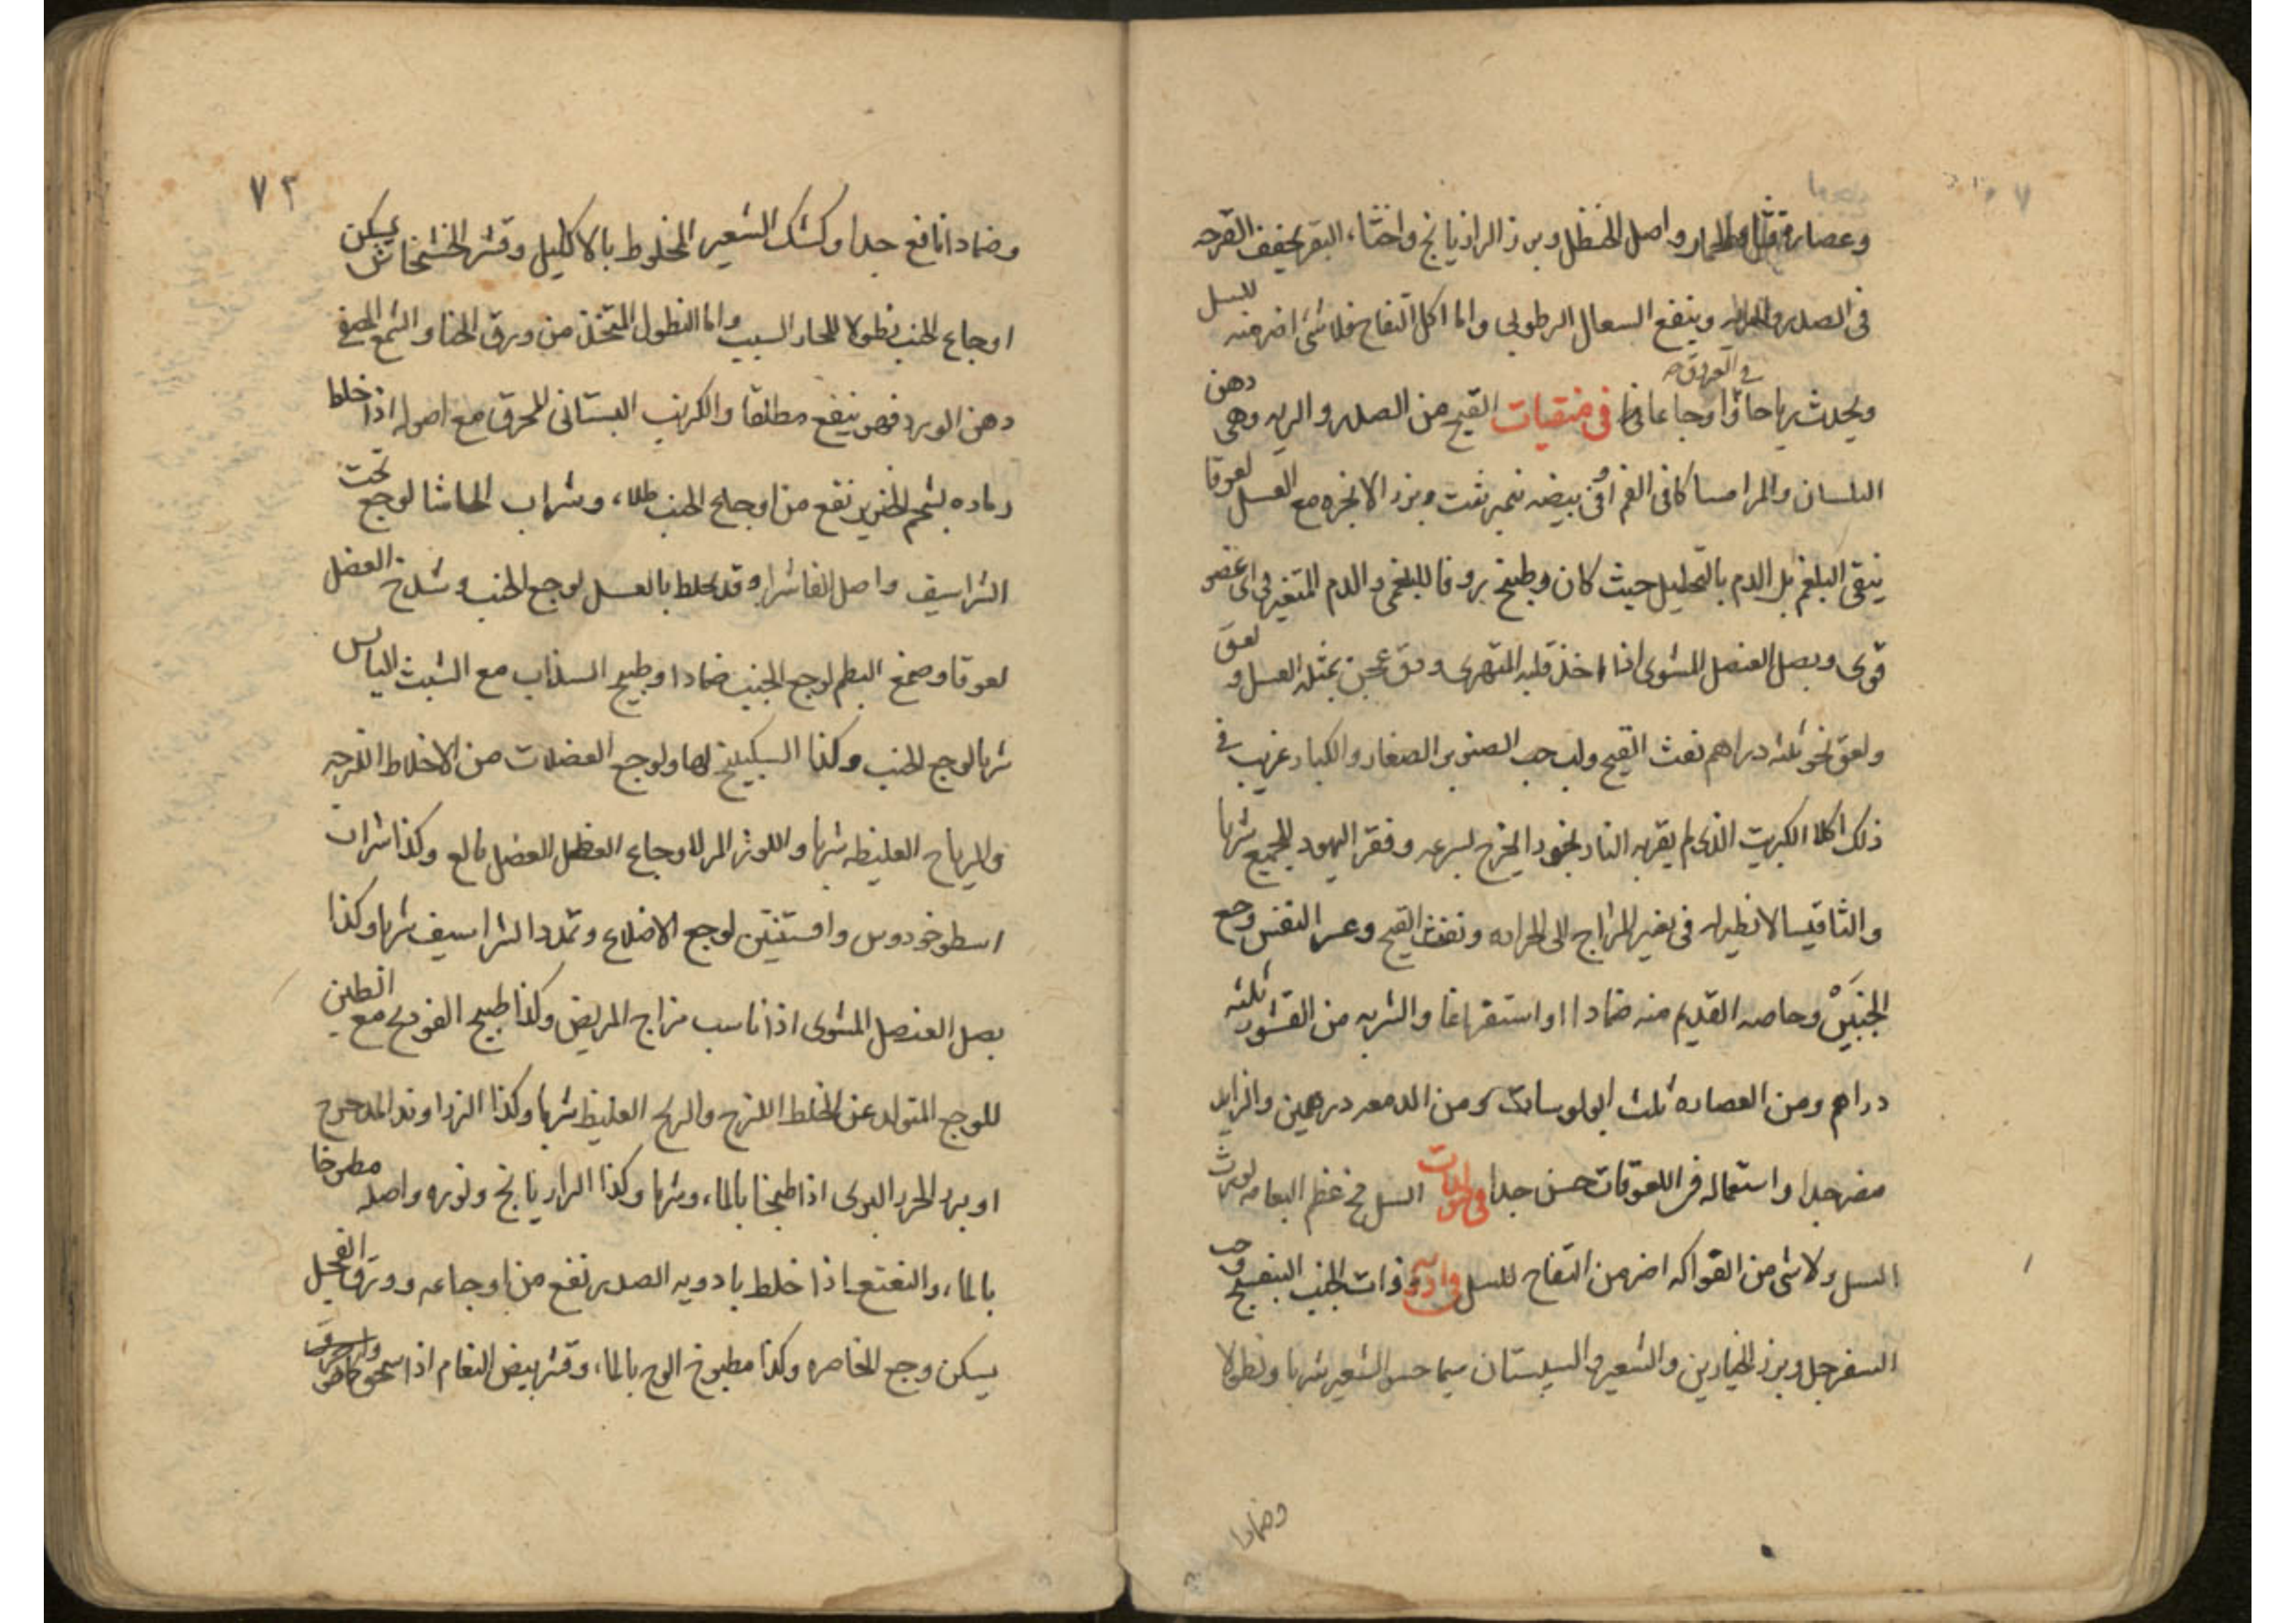 وعصارة قثاء الحمار واصل الحنظل وبزر الرازيانج واخثاء البقر يجفف القرحه
فى الصدر والريه وينفع السعال الرطوبى واما اكل التفاح فلا شئ اضر منه للسل
فى العروق
ويحدث رياحا واوجاعا فى منقيات القيح من الصدر والريه وهى دهن
البلسان والمر امساكا فى الفم او فى بيضه نيمبرشت وبزر الانجره مع العسل لعوقا
ينقى البلغم بل الدم بالتحليل حيث كان وطبيخ زوفا للبلغمى والدم المتغير فى اى عضو
قوى وبصل العنصل المشوى اذا اخذ قلبه المتهرى ودق عجن بمثله العسل و لعق
ولعق نحو ثلثه دراهم نفث القيح ولب حب الصنوبر الصغار والكبار غريب فى
ذلك اكلا الكبريت الذى لم يقربه النار بخورا يخرج بسرعه وفقر اليهود للجميع شربا
والثافيسا لا نظير له فى تغير المزاج الى الحراره ونفث القيح وعسر النفس وجع
الجنبين وخاصه القديم منه ضمادا او استفراغا والشربه من القشور ثلثه
دراهم ومن العصاره ثلث ابولوسات ومن الدمعه درهمين والزايد
مضر جدا واستعماله فى اللعوقات حسن جدا فى مولدات السل مخ عظم النعامه يورث
السل ولا شى من الفواكه اضر من التفاح للسل فى ادويه ذات الجنب البنفسج وحب
السفرجل وبزر الخيارين والشعير والسبستان سيما حسو الشعير شربا ونطولا
وضمادا
٧٢
وضمادا نافع جدا وكشك الشعير المخلوط بالاكليل وقشر الخشخاش يسكن
اوجاع الجنب نطولا للحار السبب واما النطول المتخذ من ورق الحنا والشمع المصفى
دهن الورد فهو ينفع مطلقا والكرنب البستانى للحرق مع اصوله اذا خلط
رماده بشحم الخنزير نفع من اوجاع الجنب طلاء وشراب الحاشا لوجع تحت
الشراسيف واصل الفاشرا وقد يخلط بالعسل لوجع الجنب وشدخ العضل
لعوقا وصمغ البطم لوجع الجنب ضمادا وطبيخ السذاب مع الشبث اليابس
شربا لوجع الجنب وكذا السكبينج لها ولوجع العضلات من الاخلاط اللزجه
والرياح الغليظه شربا واللوز المر لاوجاع العضل بالغ وكذا شراب
اسطوخودوس وافسنتين لوجع الاضلاع وتمدد الشراسيف شربا وكذا
بصل العنصل المشوى اذا ناسب مزاج المريض وكذا طبيخ الفودنج مع التين
للوجع المتولد عن الخلط اللزج والريح الغليظ شربا وكذا الزراوند المدحرج
او بزر الجزر البرى اذا طبخا بالماء وشربا وكذا الرازيانج وبزره واصله مطبوخا
بالماء والنعنع اذا خلط بادويه الصدر نفع من اوجاعه وورق الفجل
يسكن وجع الخاصره وكذا مطبوخ الوج بالماء وقشر بيض النعام اذا سحق